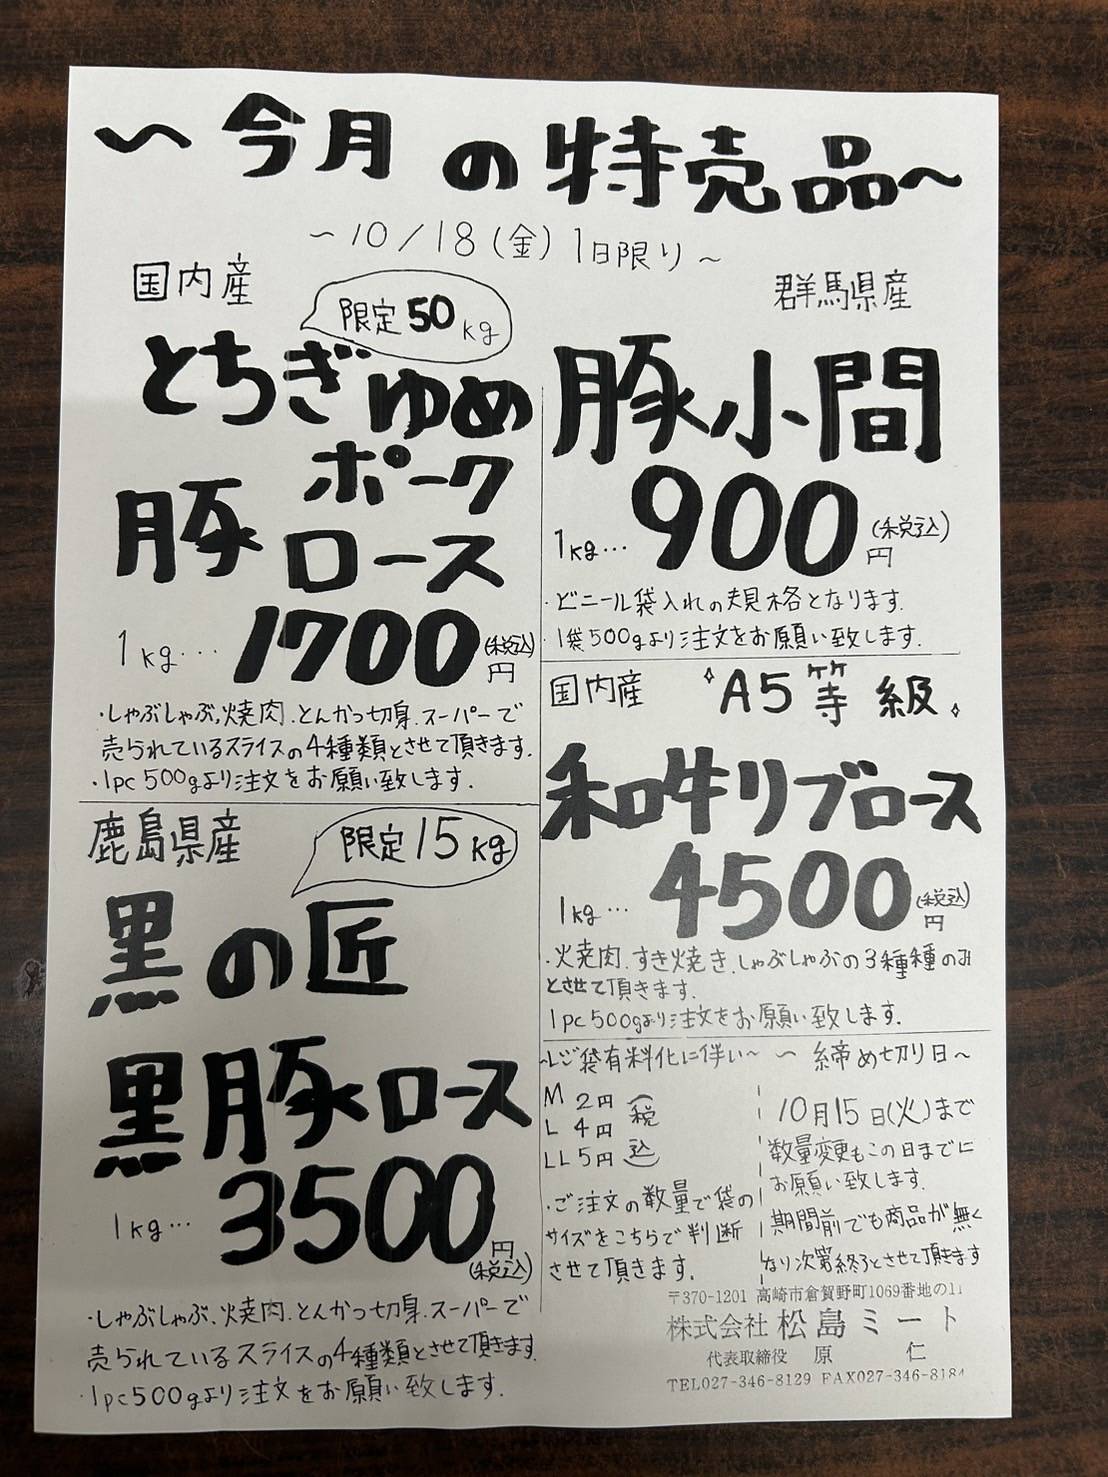 ～今月の特売品～
～10/18(金)1日限り～
国内産
限定50kg
とちぎゆめ
ポーク
豚ロース
1kg…1700円(税込)
・しゃぶしゃぶ.焼肉.とんかつ切身.スーパーで
売られているスライスの4種類とさせて頂きます.
・1pc500gより注文をお願い致します.
鹿島県産
限定15kg
黒の匠
黒豚ロース
1kg…3500円(税込)
・しゃぶしゃぶ、焼肉.とんかつ切身.スーパーで
売られているスライスの4種類とさせて頂きます
・1pc500gより注文をお願い致します.
群馬県産
豚小間
1kg…900円(税込)
・ビニール袋入れの規格となります.
・1袋500gより注文をお願い致します.
国内産 A5等級
和牛リブロース
1kg…4500円(税込)
・焼肉.すき焼き.しゃぶしゃぶの3種種のみ
とさせて頂きます.
1pc500gより注文をお願い致します.
～レジ袋有料化に伴い～
M 2円
L 4円
LL 5円
(税込)
・ご注文の数量で袋の
サイズをこちらで判断
させて頂きます.
～締め切り日～
10月15日(火)まで
数量変更もこの日までに
お願い致します.
期間前でも商品が無く
なり次第終了とさせて頂きます
〒370-1201 高崎市倉賀野町1069番地の11
株式会社 松島ミート
代表取締役 原 仁
TEL027-346-8129 FAX027-346-8184